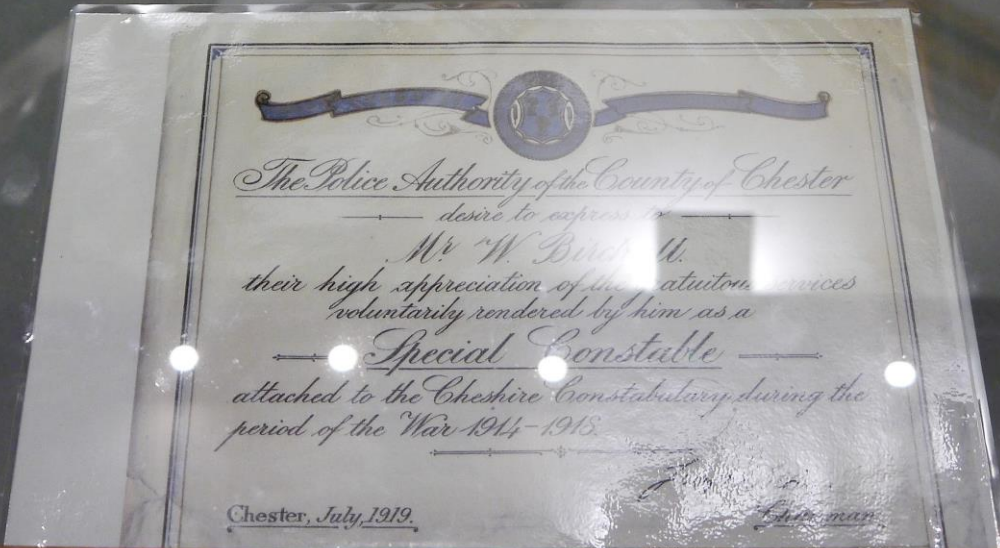 The Police Authority of the County of Chester
desire to express to
Mr. W.
their high appreciation of the gratuitous services
voluntarily rendered by him as a
Special Constable
attached to the Cheshire Constabulary during the
period of the War 1914-1918.
Chester, July, 1919.
Chairman.